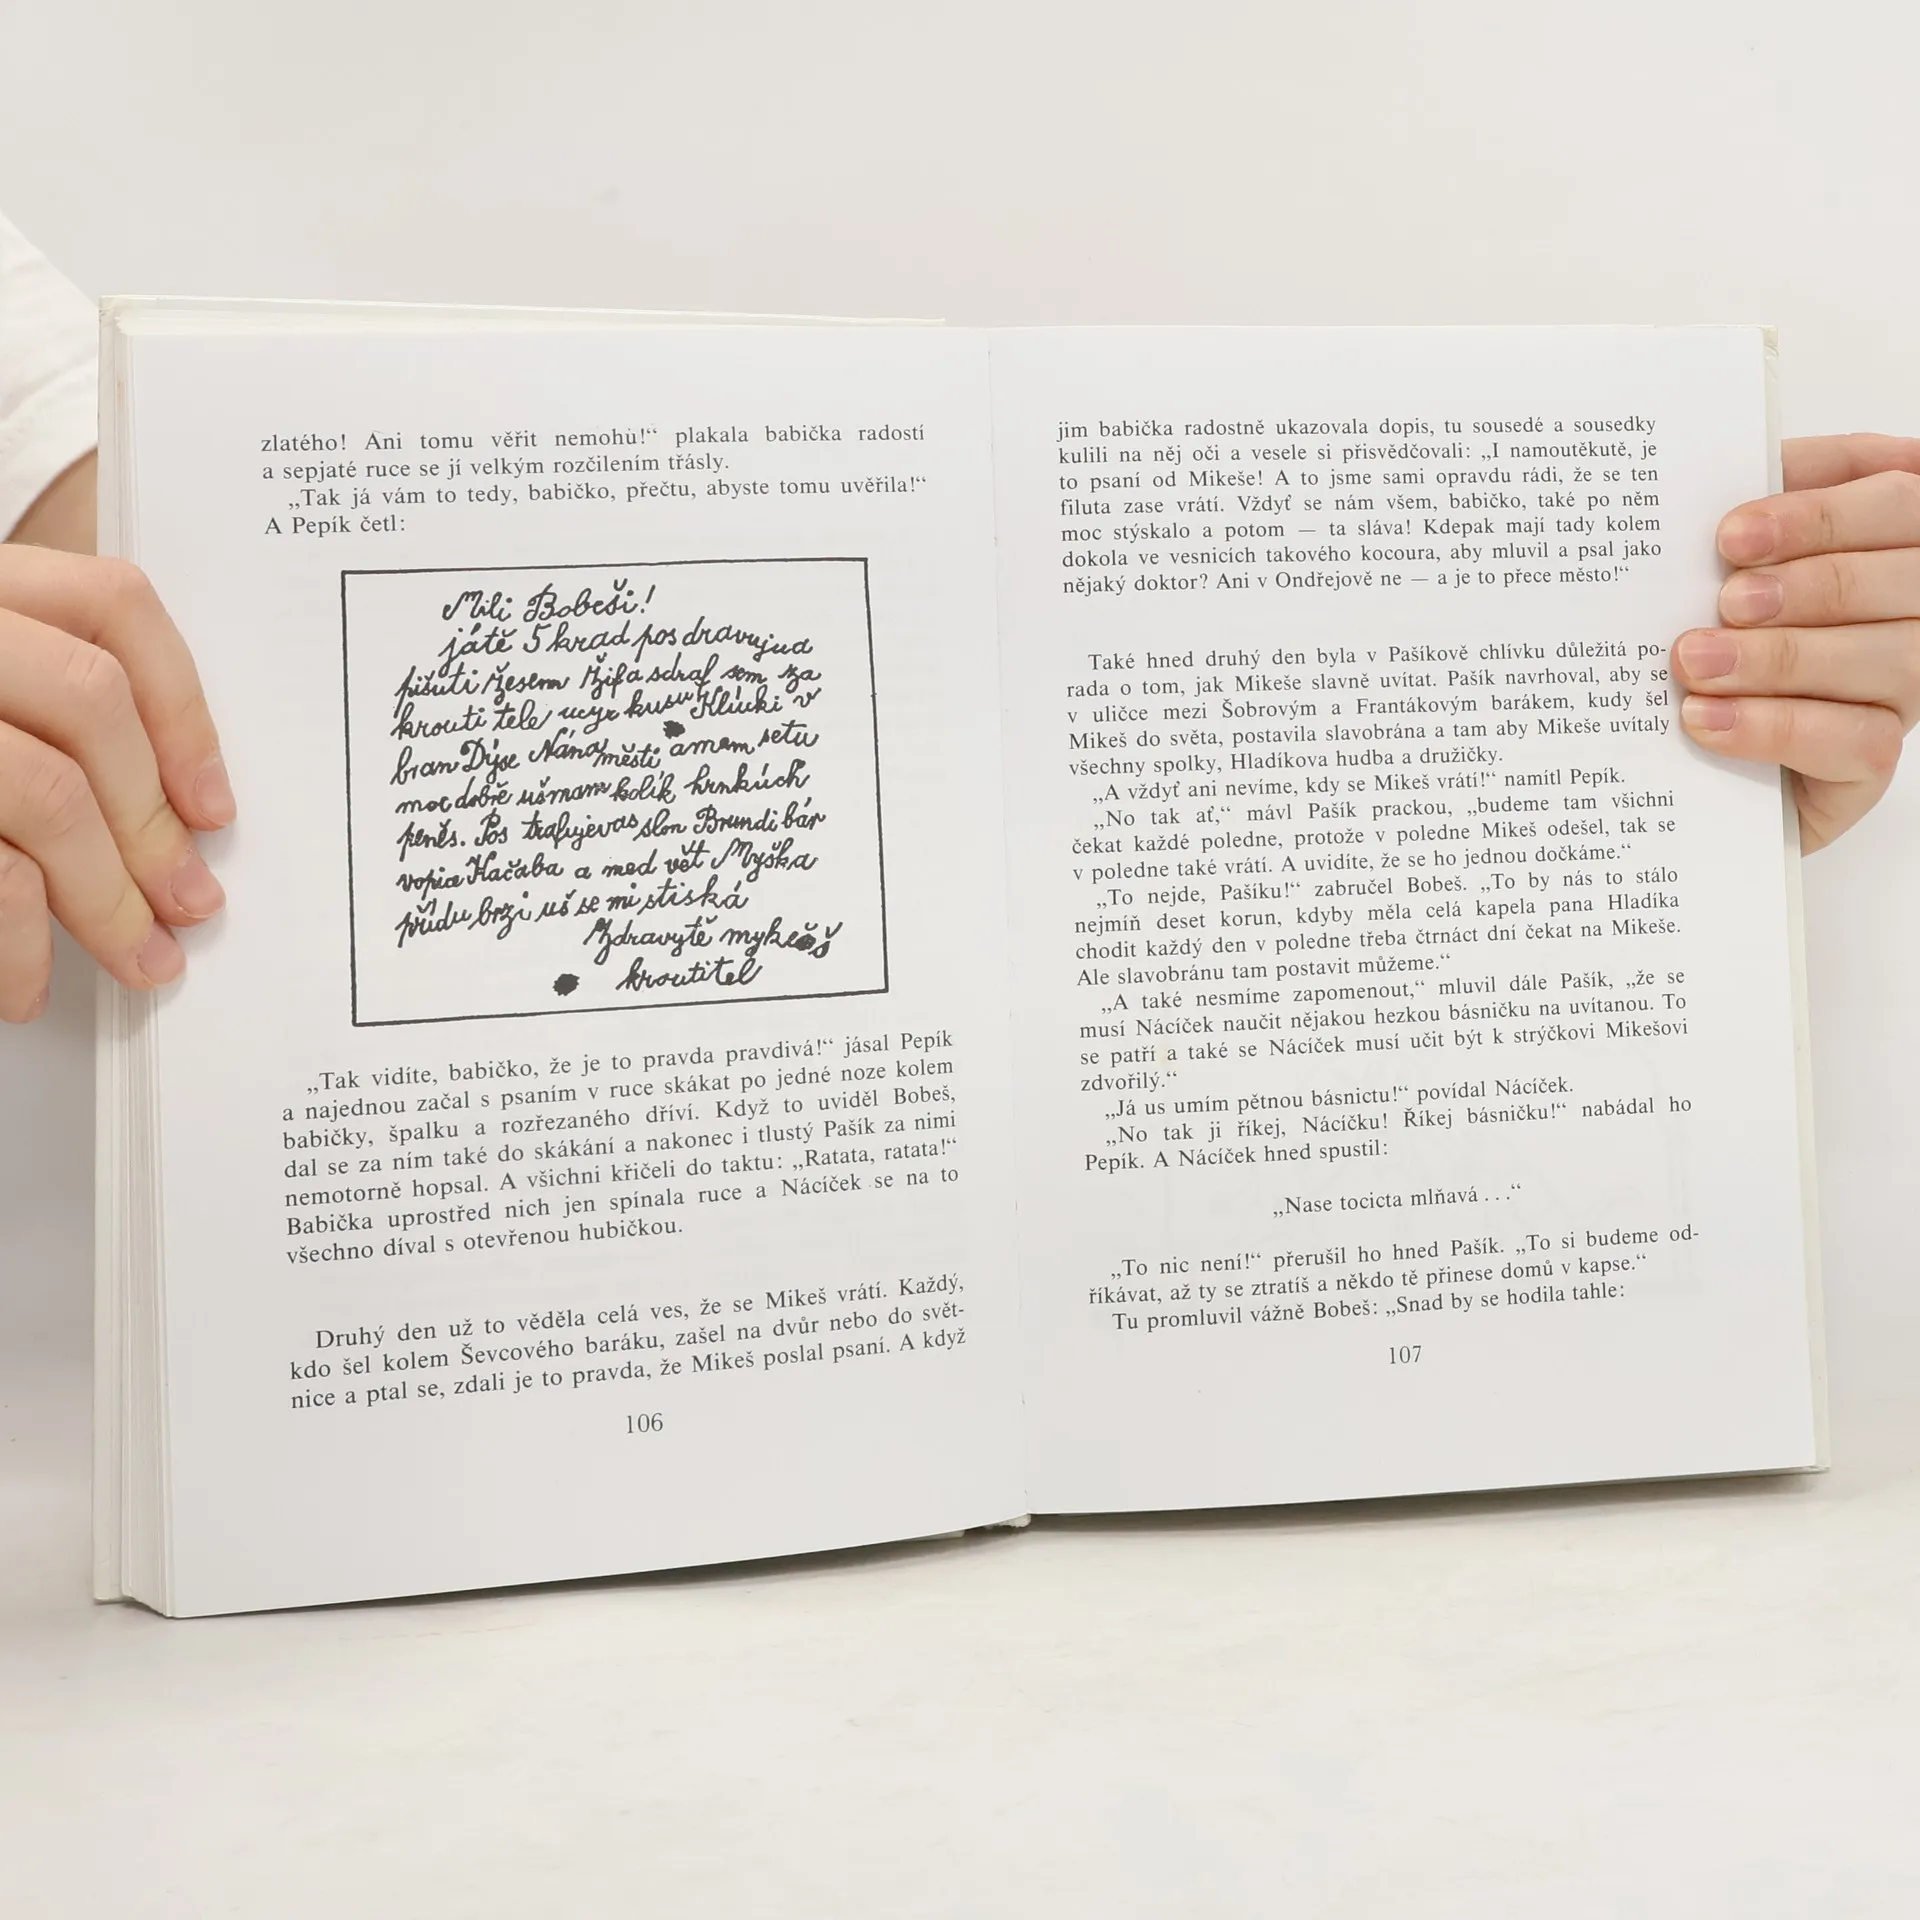 zlatého! Ani tomu věřit nemohu!“ plakala babička radostí
a sepjaté ruce se jí velkým rozčilením třásly.
„Tak já vám to tedy, babičko, přečtu, abyste tomu uvěřila!“
A Pepík četl:
Mili Bobeši!
játě 5 krad pos dravujua
pišuti žesem žifa sdraf sem za
krouti tele ucyr kusu Klúcki v
bran Dýse Nána městi amam setu
moc dobře ušmam kolik hrnkúch
peněs. Pos trafujevas slon Brundibár
vopice Kačaba a med vět Myška
přídu brzi uš se mi stiská
Zdravytě mykeš
kroutitel
„Tak vidíte, babičko, že je to pravda pravdivá!“ jásal Pepík
a najednou začal s psaním v ruce skákat po jedné noze kolem
babičky, špalku a rozřezaného dříví. Když to uviděl Bobeš,
dal se za ním také do skákání a nakonec i tlustý Pašík za nimi
nemotorně hopsal. A všichni křičeli do taktu: „Ratata, ratata!“
Babička uprostřed nich jen spínala ruce a Nácíček se na to
všechno díval s otevřenou hubičkou.
Druhý den už to věděla celá ves, že se Mikeš vrátí. Každý,
kdo šel kolem Ševcového baráku, zašel na dvůr nebo do svět-
nice a ptal se, zdali je to pravda, že Mikeš poslal psaní. A když
106
jim babička radostně ukazovala dopis, tu sousedé a sousedky
kulili na něj oči a vesele si přisvědčovali: „I namoutěkutě, je
to psaní od Mikeše! A to jsme sami opravdu rádi, že se ten
filuta zase vrátí. Vždyť se nám všem, babičko, také po něm
moc stýskalo a potom — ta sláva! Kdepak mají tady kolem
dokola ve vesnicích takového kocoura, aby mluvil a psal jako
nějaký doktor? Ani v Ondřejově ne — a je to přece město!“
Také hned druhý den byla v Pašíkově chlívku důležitá po-
rada o tom, jak Mikeše slavně uvítat. Pašík navrhoval, aby se
v uličce mezi Šobrovým a Frantákovým barákem, kudy šel
Mikeš do světa, postavila slavobrána a tam aby Mikeše uvítaly
všechny spolky, Hladíkova hudba a družičky.
„A vždyť ani nevíme, kdy se Mikeš vrátí!“ namítl Pepík.
„No tak ať,“ mávl Pašík prackou, „budeme tam všichni
čekat každé poledne, protože v poledne Mikeš odešel, tak se
v poledne také vrátí. A uvidíte, že se ho jednou dočkáme.“
„To nejde, Pašíku!“ zabručel Bobeš. „To by nás to stálo
nejmíň deset korun, kdyby měla celá kapela pana Hladíka
chodit každý den v poledne třeba čtrnáct dní čekat na Mikeše.
Ale slavobránu tam postavit můžeme.“
„A také nesmíme zapomenout,“ mluvil dále Pašík, „že se
musí Nácíček naučit nějakou hezkou básničku na uvítanou. To
se patří a také se Nácíček musí učit být k strýčkovi Mikešovi
zdvořilý.“
„Já us umím pětnou básnictu!“ povídal Nácíček.
„No tak ji říkej, Nácíčku! Říkej básničku!“ nabádal ho
Pepík. A Nácíček hned spustil:
„Nase tocicta mlňavá . . .“
„To nic není!“ přerušil ho hned Pašík. „To si budeme od-
říkávat, až ty se ztratíš a někdo tě přinese domů v kapse.“
Tu promluvil vážně Bobeš: „Snad by se hodila tahle:
107